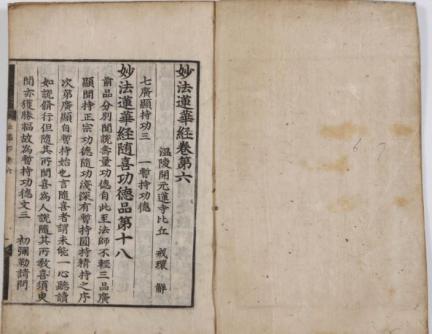 妙法蓮華経卷第六
溫陵開元蓮寺比丘 戒環 解
七廣顯持功三 一暫持功德
妙法蓮華経隨喜功德品第十八
前品分別聞說壽量功德自此至法師不輕三品廣
顯聞持正宗功德隨功淺深有暫持圓持精持之序
次第廣顯自暫持始也言隨喜者謂未能一心聽讀
如說脩行但隨其所聞喜爲人說隨其所教喜須臾
聞亦獲勝福故爲暫持功德文三 初彌勒請問